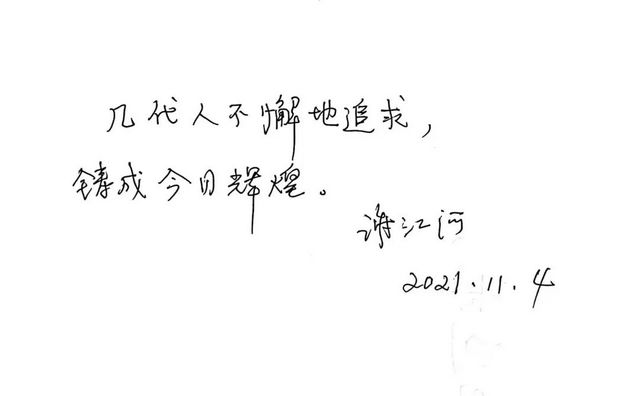 几代人不懈地追求，
铸成今日辉煌。
江河
2021.11.4